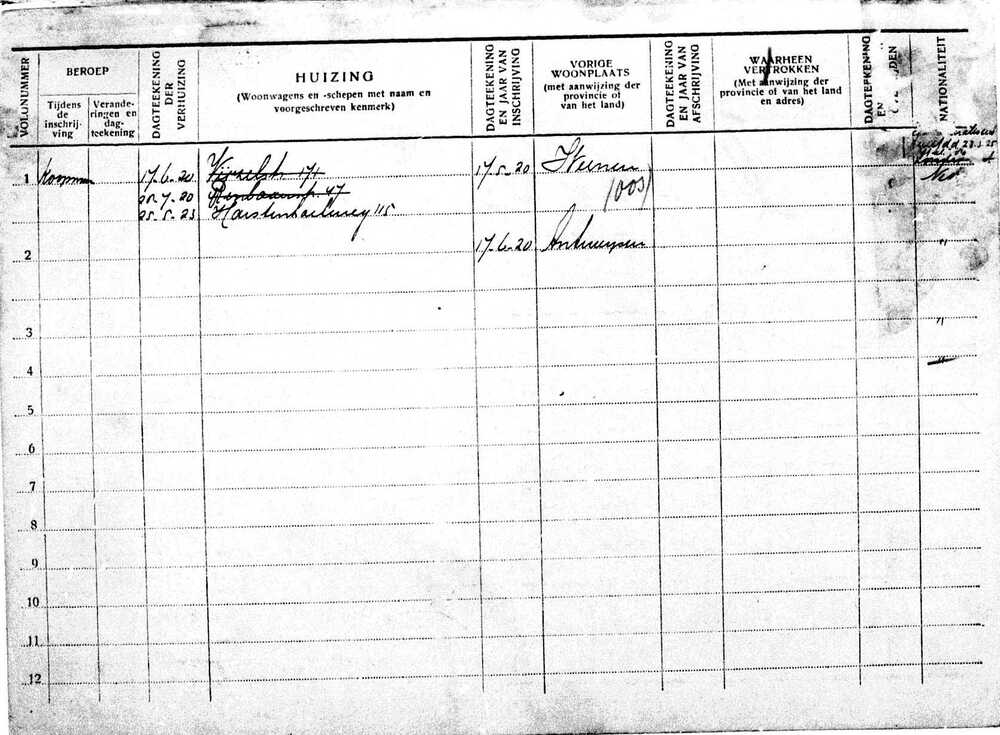 VOLGNUMMER
BEROEP
Tijdens
de
inschrij-
ving
Verande-
ringen en
dag-
teekening
DAGTEEKENING
DER
VERHUIZING
HUIZING
(Woonwagens en -schepen met naam en
voorgeschreven kenmerk)
DAGTEEKENING
EN JAAR VAN
INSCHRIJVING
VORIGE
WOONPLAATS
(met aanwijzing der
provincie of
van het land)
DAGTEEKENING
EN JAAR VAN
AFSCHRIJVING
WAARHEEN
VERTROKKEN
(Met aanwijzing der
provincie of van het land
en adres)
DAGTEEKENING
EN
DEN
NATIONALITEIT
23.3.25
1 17-6-20 171 17-5-20 Weenen
Ned
20-7-20 47 (OOS)
25-5-23 115
2 17-6-20 Antwerpen "
3 "
4 "
5
6
7
8
9
10
11
12